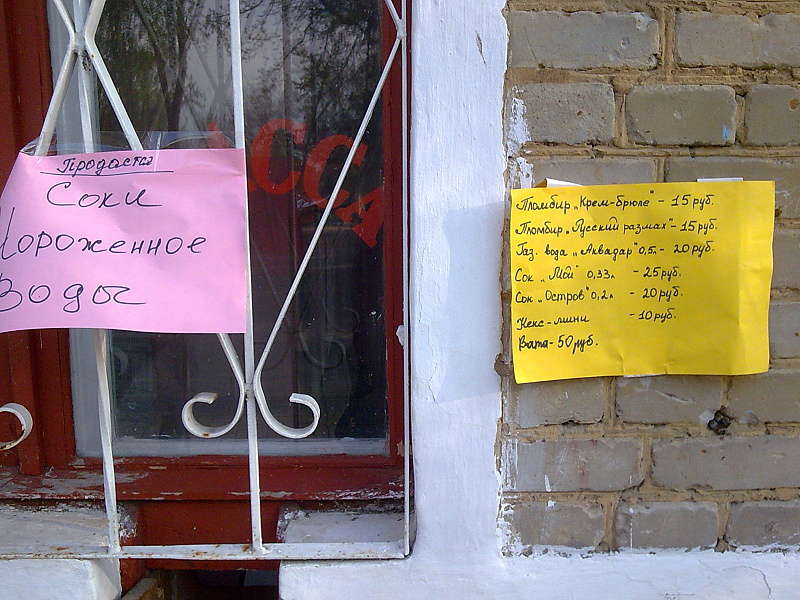 Продаётся
Соки
Мороженное
Воды
КАССА
Пломбир „Крем-брюле" - 15 руб.
Пломбир „Русский размах" - 15 руб.
Газ. вода „Аквадар" 0,5л - 20 руб.
Сок „Мой" 0,33л - 25 руб.
Сок „Остров" 0,2л - 20 руб.
Кекс-мини - 10 руб.
Вата - 50 руб.